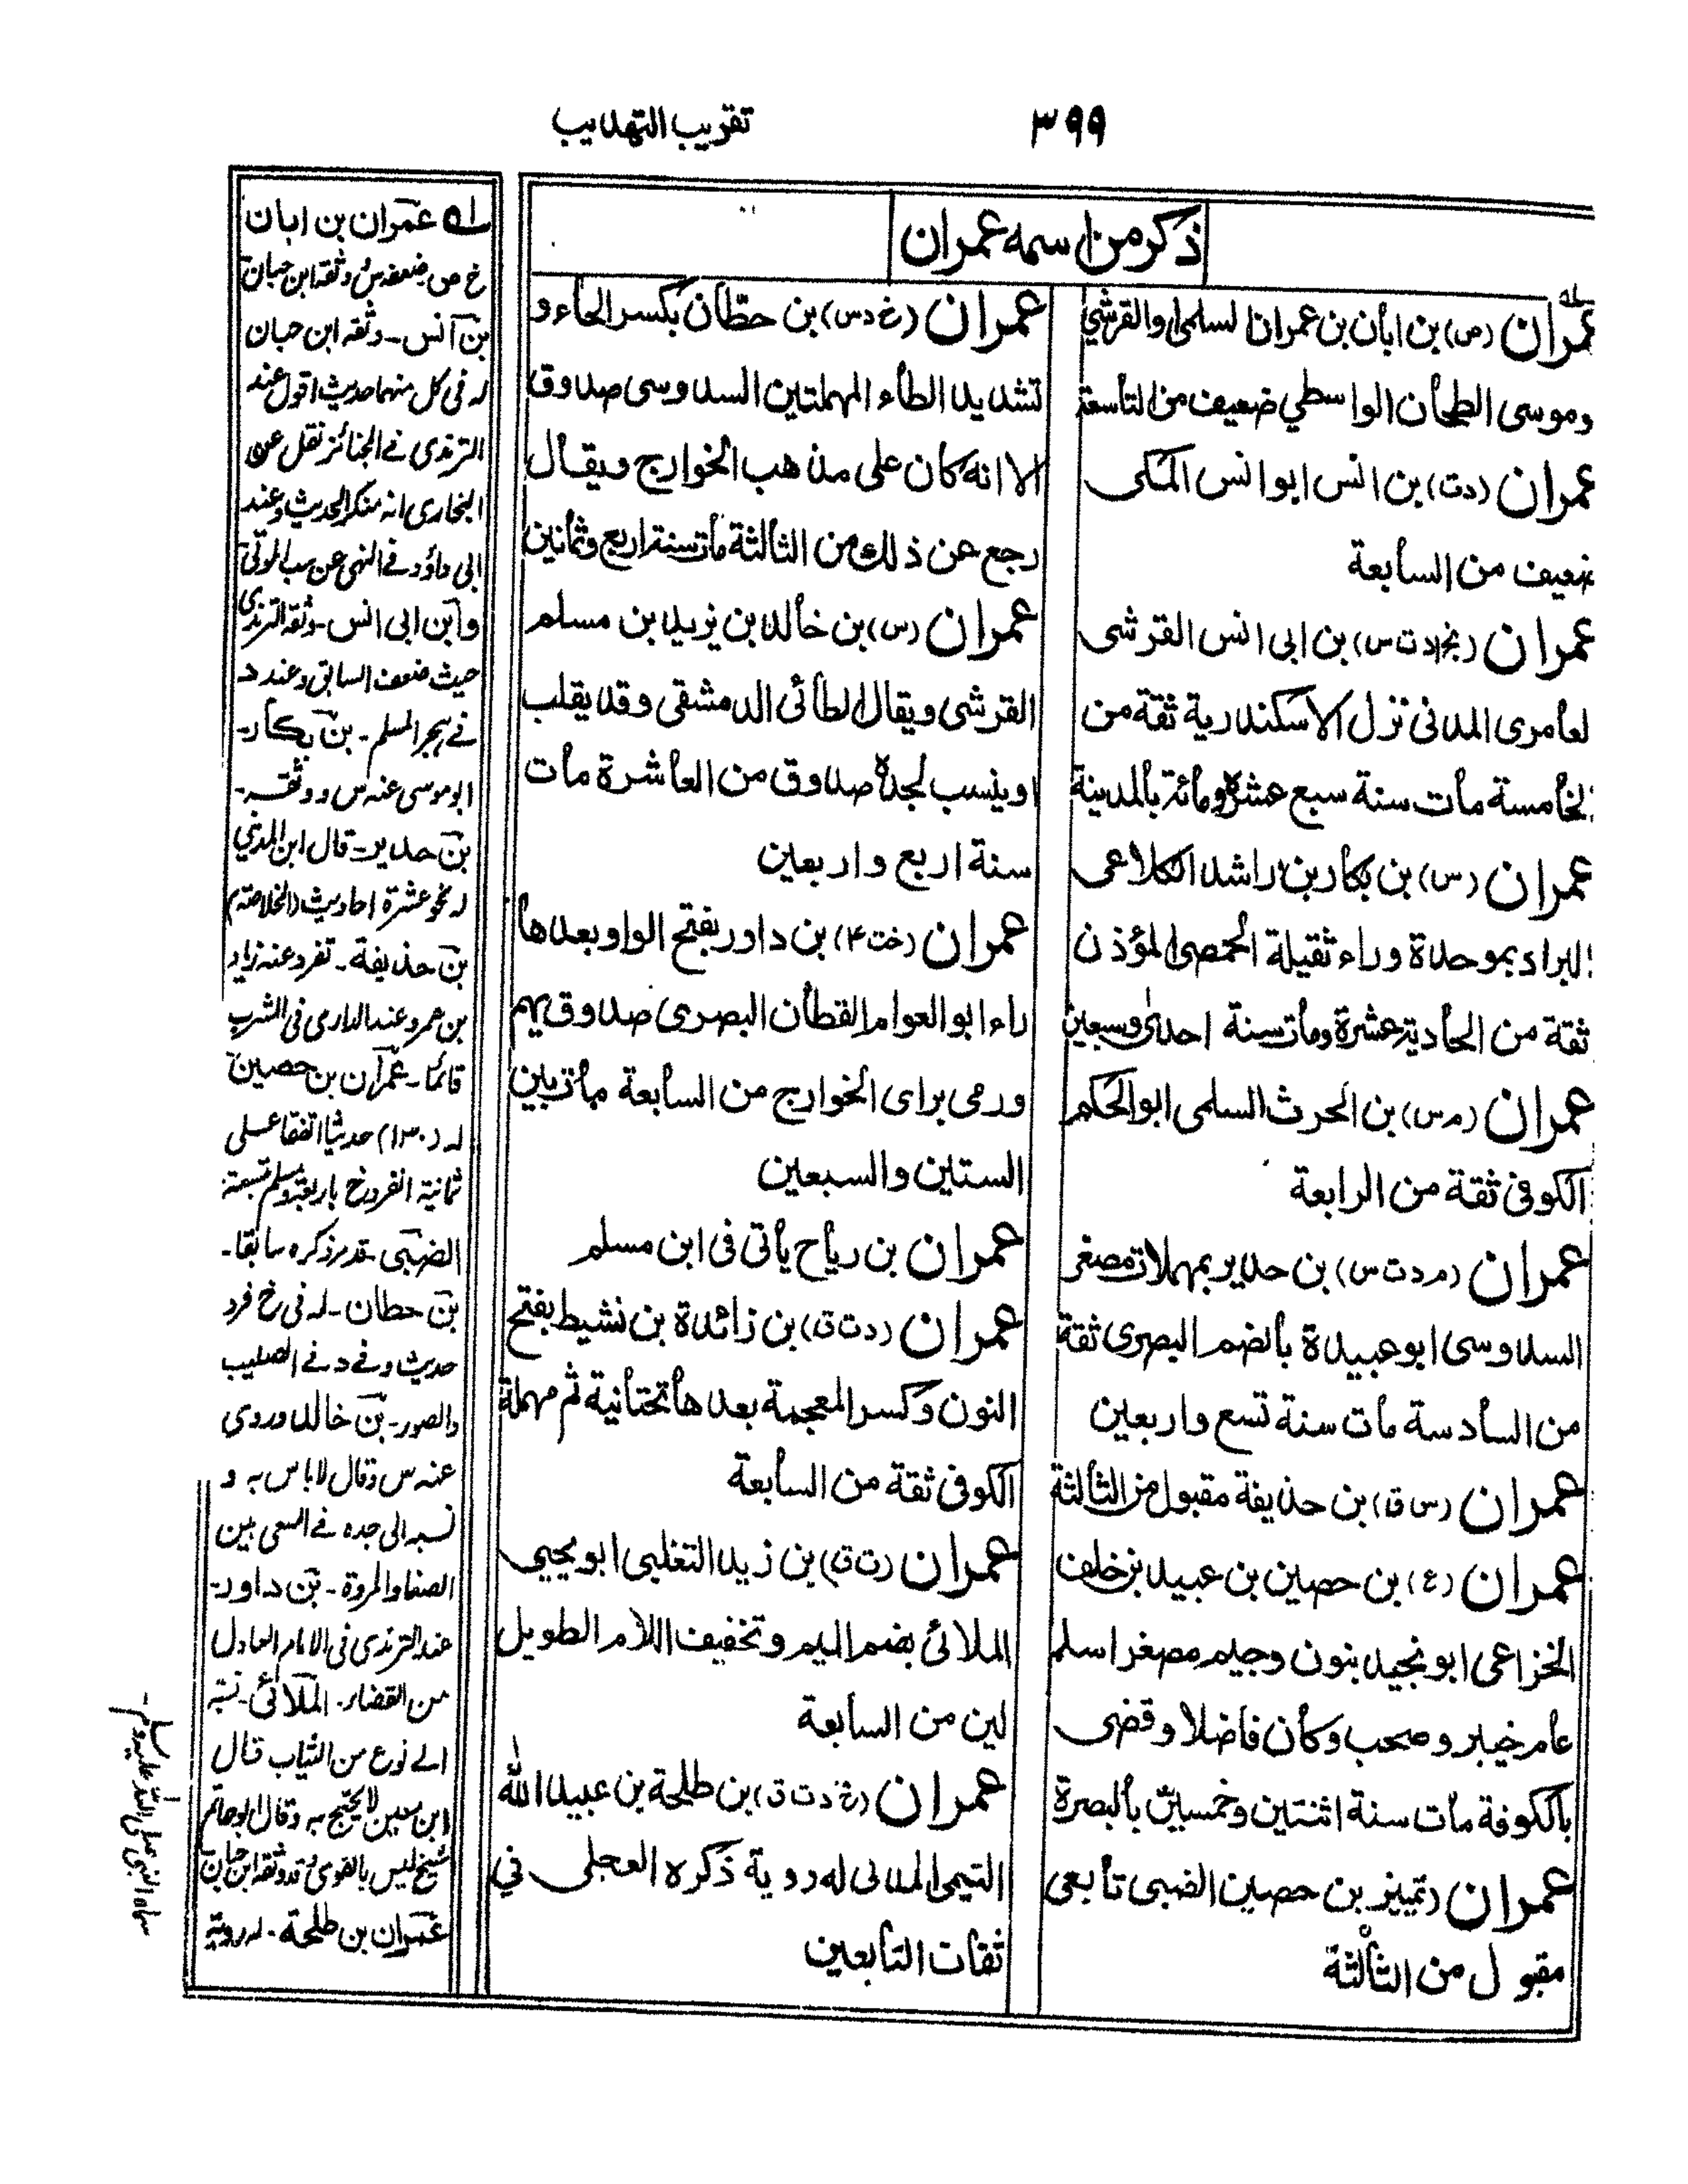 ٣٩٩
تقريب التهذيب
ذكر من اسمه عمران
عمران (س) بن ابان بن عمران السلمى او القرشي
وموسى الطحان الواسطي ضعيف من التاسعة
عمران (دت) بن انس ابو انس المكى
ضعيف من السابعة
عمران (بخ د ت س) بن ابى انس القرشى
لعامرى المدنى نزل الاسكندرية ثقة من
لخامسة مات سنة سبع عشرة ومائة بالمدينة
عمران (س) بن بكار بن راشد الكلاعى
البراد بموحدة وراء ثقيلة الحمصى المؤذن
ثقة من الحادية عشرة ومات سنة احدى وسبعين
عمران (م س) بن الحرث السلمى ابو الحكم
الكوفى ثقة من الرابعة
عمران (م د ت س) بن حدير بمهملات مصغر
السدوسى ابو عبيدة بالضم البصرى ثقة
من السادسة مات سنة تسع واربعين
عمران (س ق) بن حذيفة مقبول من الثالثة
عمران (ع) بن حصين بن عبيد بن خلف
الخزاعى ابو نجيد بنون وجيم مصغر اسلم
عام خيبر وصحب وكان فاضلا وقضى
بالكوفة مات سنة اثنتين وخمسين بالبصرة
عمران (تمييز بن حصين الضبى تابعى
مقبول من الثالثة
عمران (خ د س) بن حطان بكسر الحاء و
تشديد الطاء المهملتين السدوسى صدوق
الا انه كان على مذهب الخوارج ويقال
رجع عن ذلك من الثالثة مات سنة اربع وثمانين
عمران (س) بن خالد بن يزيد بن مسلم
القرشى ويقال الطائى الدمشقى وقد يقلب
او ينسب لجده صدوق من العاشرة مات
سنة اربع واربعين
عمران (خت ۴) بن داور بفتح الواو بعدها
راء ابو العوام القطان البصرى صدوق يهم
ورمى براى الخوارج من السابعة مات بين
الستين والسبعين
عمران بن رياح ياتى فى ابن مسلم
عمران (د ت ق) بن زائدة بن نشيط بفتح
النون وكسر المعجمة بعدها تحتانية ثم مهملة
الكوفى ثقة من السابعة
عمران (ت ق) بن زيد التغلبى ابو يحيى
الملائى بضم الميم وتخفيف اللام الطويل
لين من السابعة
عمران (بخ د ت ق) بن طلحة بن عبيد الله
التيمى المدنى له روية ذكره العجلى في
ثقات التابعين
له عمران بن ابان
ضعفه س وثقه ابن حبان
بن انس۔ وثقه ابن حبان
له فى كل منهما حديث اقول عند
الترمذى فے الجنائز نقل عن
البخارى انه منكر الحديث وعند
ابى داؤد فے النهى عن سب الموتى
وابن ابى انس۔ وثقه الترمذى
حيث ضعف السابق وعند د
فے هجر المسلم۔ بن بكار۔
ابو موسى عنه س ووثقه۔
بن حدير۔ قال ابن المدينى
له نحو عشرة احاديث (الخلاصة)
بن حذيفة۔ تفرد عنه زياد
بن عمرو عند الدارمى فى الشرب
قائما۔ عمران بن حصين
له (١٣٠) حديثا اتفقا على
ثمانية انفرد خ باربعة ومسلم بتسعة
الضبى۔ قد مر ذكره سابقا۔
بن حطان۔ له فى خ فرد
حديث وفے د فے الصليب
والصور۔ بن خالد وروى
عنه س وقال لا باس به و
نسبه الى جده فے السعى بين
الصفا والمروة۔ بن داور۔
عند الترمذى فى الامام العادل
من القضاء۔ الملائى۔ نسبة
الے نوع من الثياب قال
ابن معين لا يحتج به وقال ابو حاتم
شيخ ليس بالقوى وقد وثقه ابن حبان
عمران بن طلحة۔ له روية
سماه النبى صلى الله عليه وسلم۔